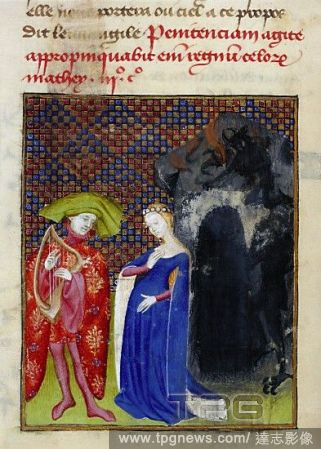 elle nous portera ou ciel a ce propos
dit Penitenciam agite
appropinquabit em regnum celorū
mathey . iij. c°
TPG
www.tpgnews.com / 達志影像